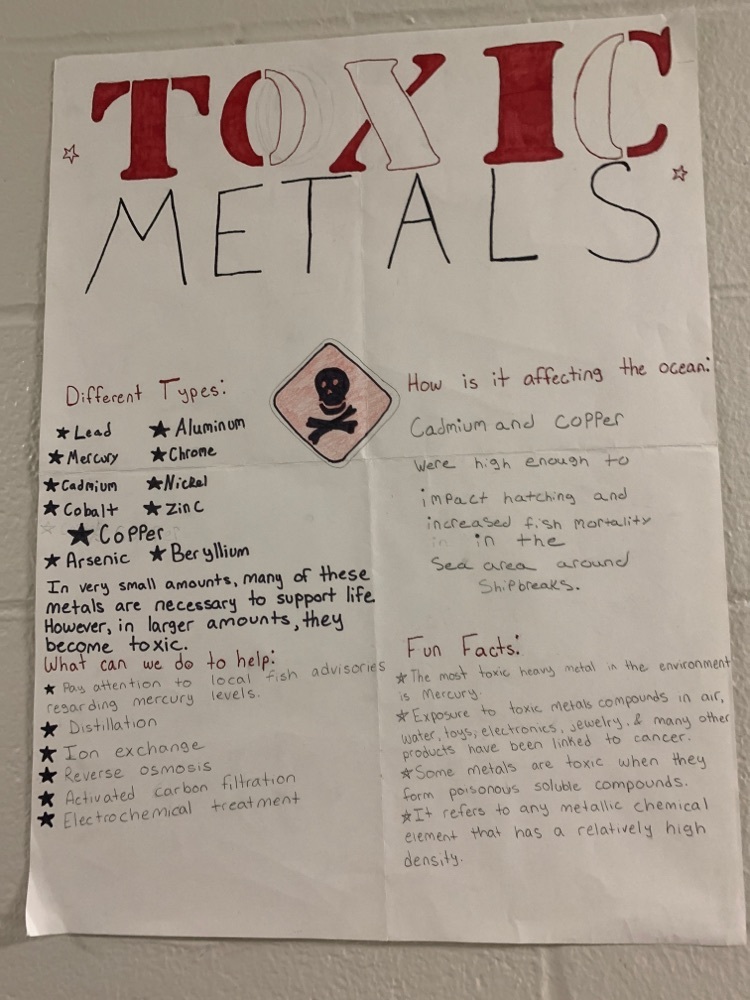 TOXIC
METALS
Different Types:
★ Lead ★ Aluminum
★ Mercury ★ Chrome
★ Cadmium ★ Nickel
★ Cobalt ★ Zinc
★ Copper
★ Arsenic ★ Beryllium
In very small amounts, many of these
metals are necessary to support life.
However, in larger amounts, they
become toxic.
What can we do to help:
★ Pay attention to local fish advisories
regarding mercury levels.
★ Distillation
★ Ion exchange
★ Reverse osmosis
★ Activated carbon filtration
★ Electrochemical treatment
How is it affecting the ocean:
Cadmium and copper
were high enough to
impact hatching and
increased fish mortality
in the
Sea area around
Shipbreaks.
Fun Facts:
☆ The most toxic heavy metal in the environment
is Mercury.
☆ Exposure to toxic metals compounds in air,
water, toys, electronics, jewelry, & many other
products have been linked to cancer.
☆ Some metals are toxic when they
form poisonous soluble compounds.
☆ It refers to any metallic chemical
element that has a relatively high
density.